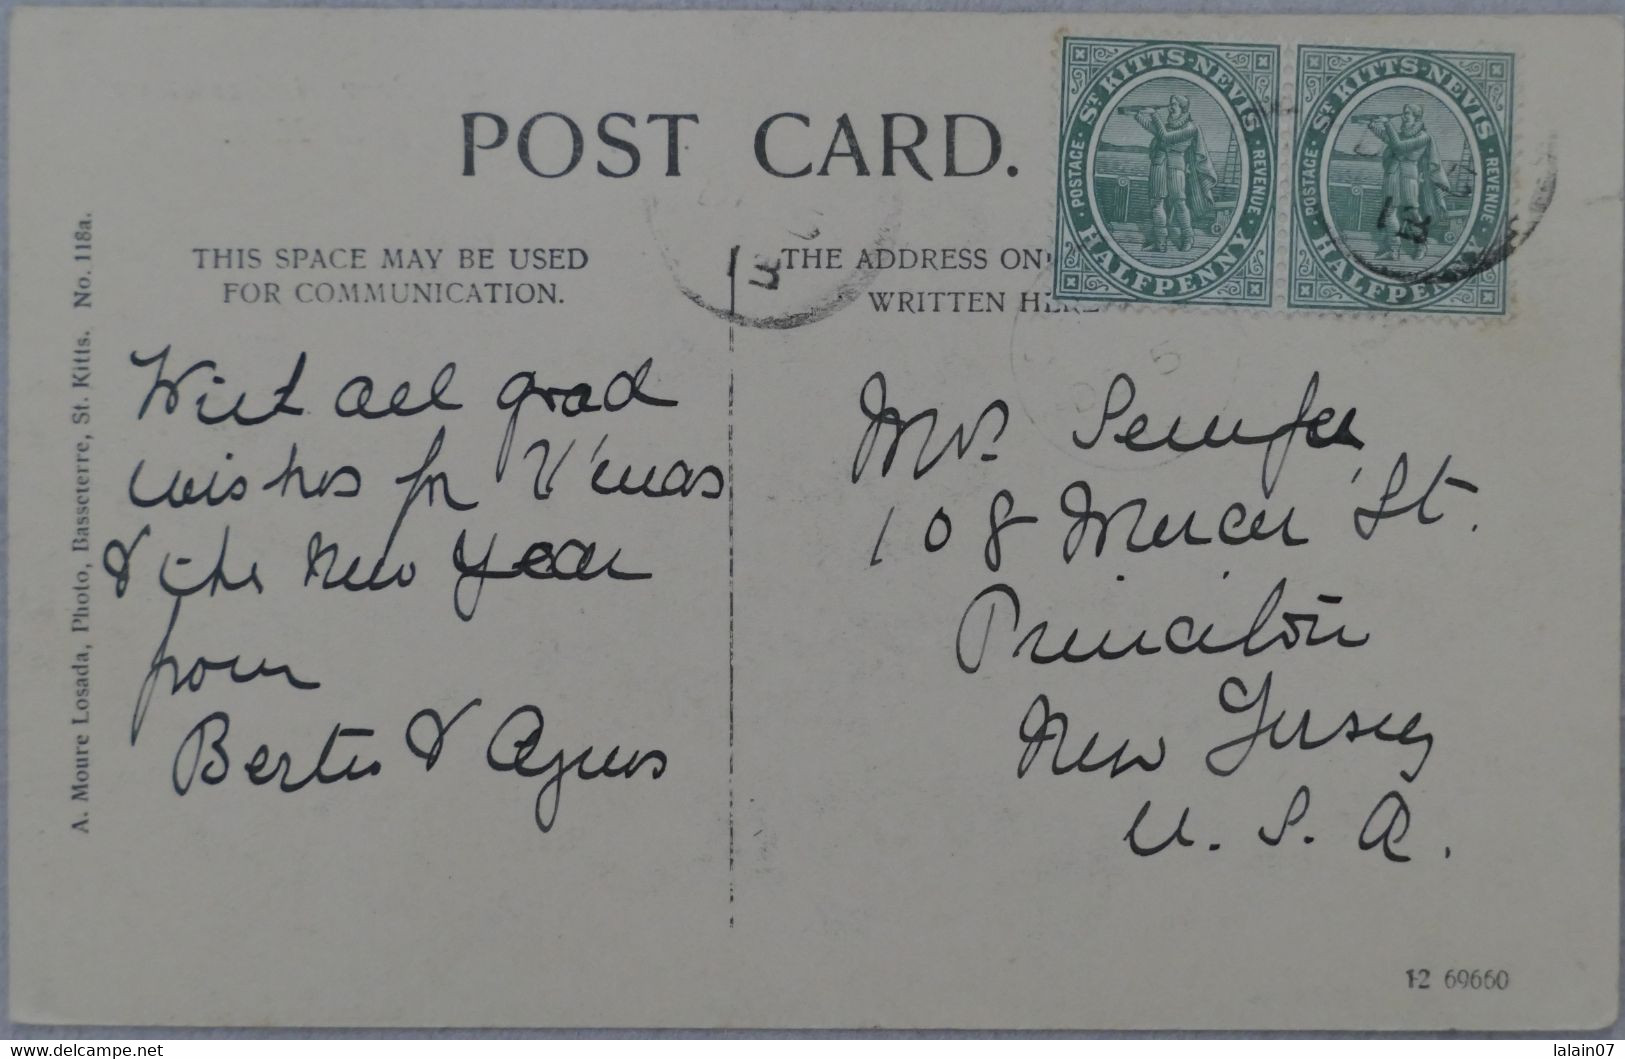 POST CARD.
THIS SPACE MAY BE USED
FOR COMMUNICATION.
THE ADDRESS ON
WRITTEN HERE
ST KITTS-NEVIS
POSTAGE · REVENUE
HALFPENNY
ST KITTS-NEVIS
POSTAGE · REVENUE
HALFPENNY
A. Moure Losada, Photo, Basseterre, St. Kitts. No. 118a.
With all good
wishes for X'mas
& the New Year
from
& Agnes
Mrs.
108 Mercer St.
Princeton
New Jersey
U. S. A.
12 69660
www.delcampe.net
lalain07